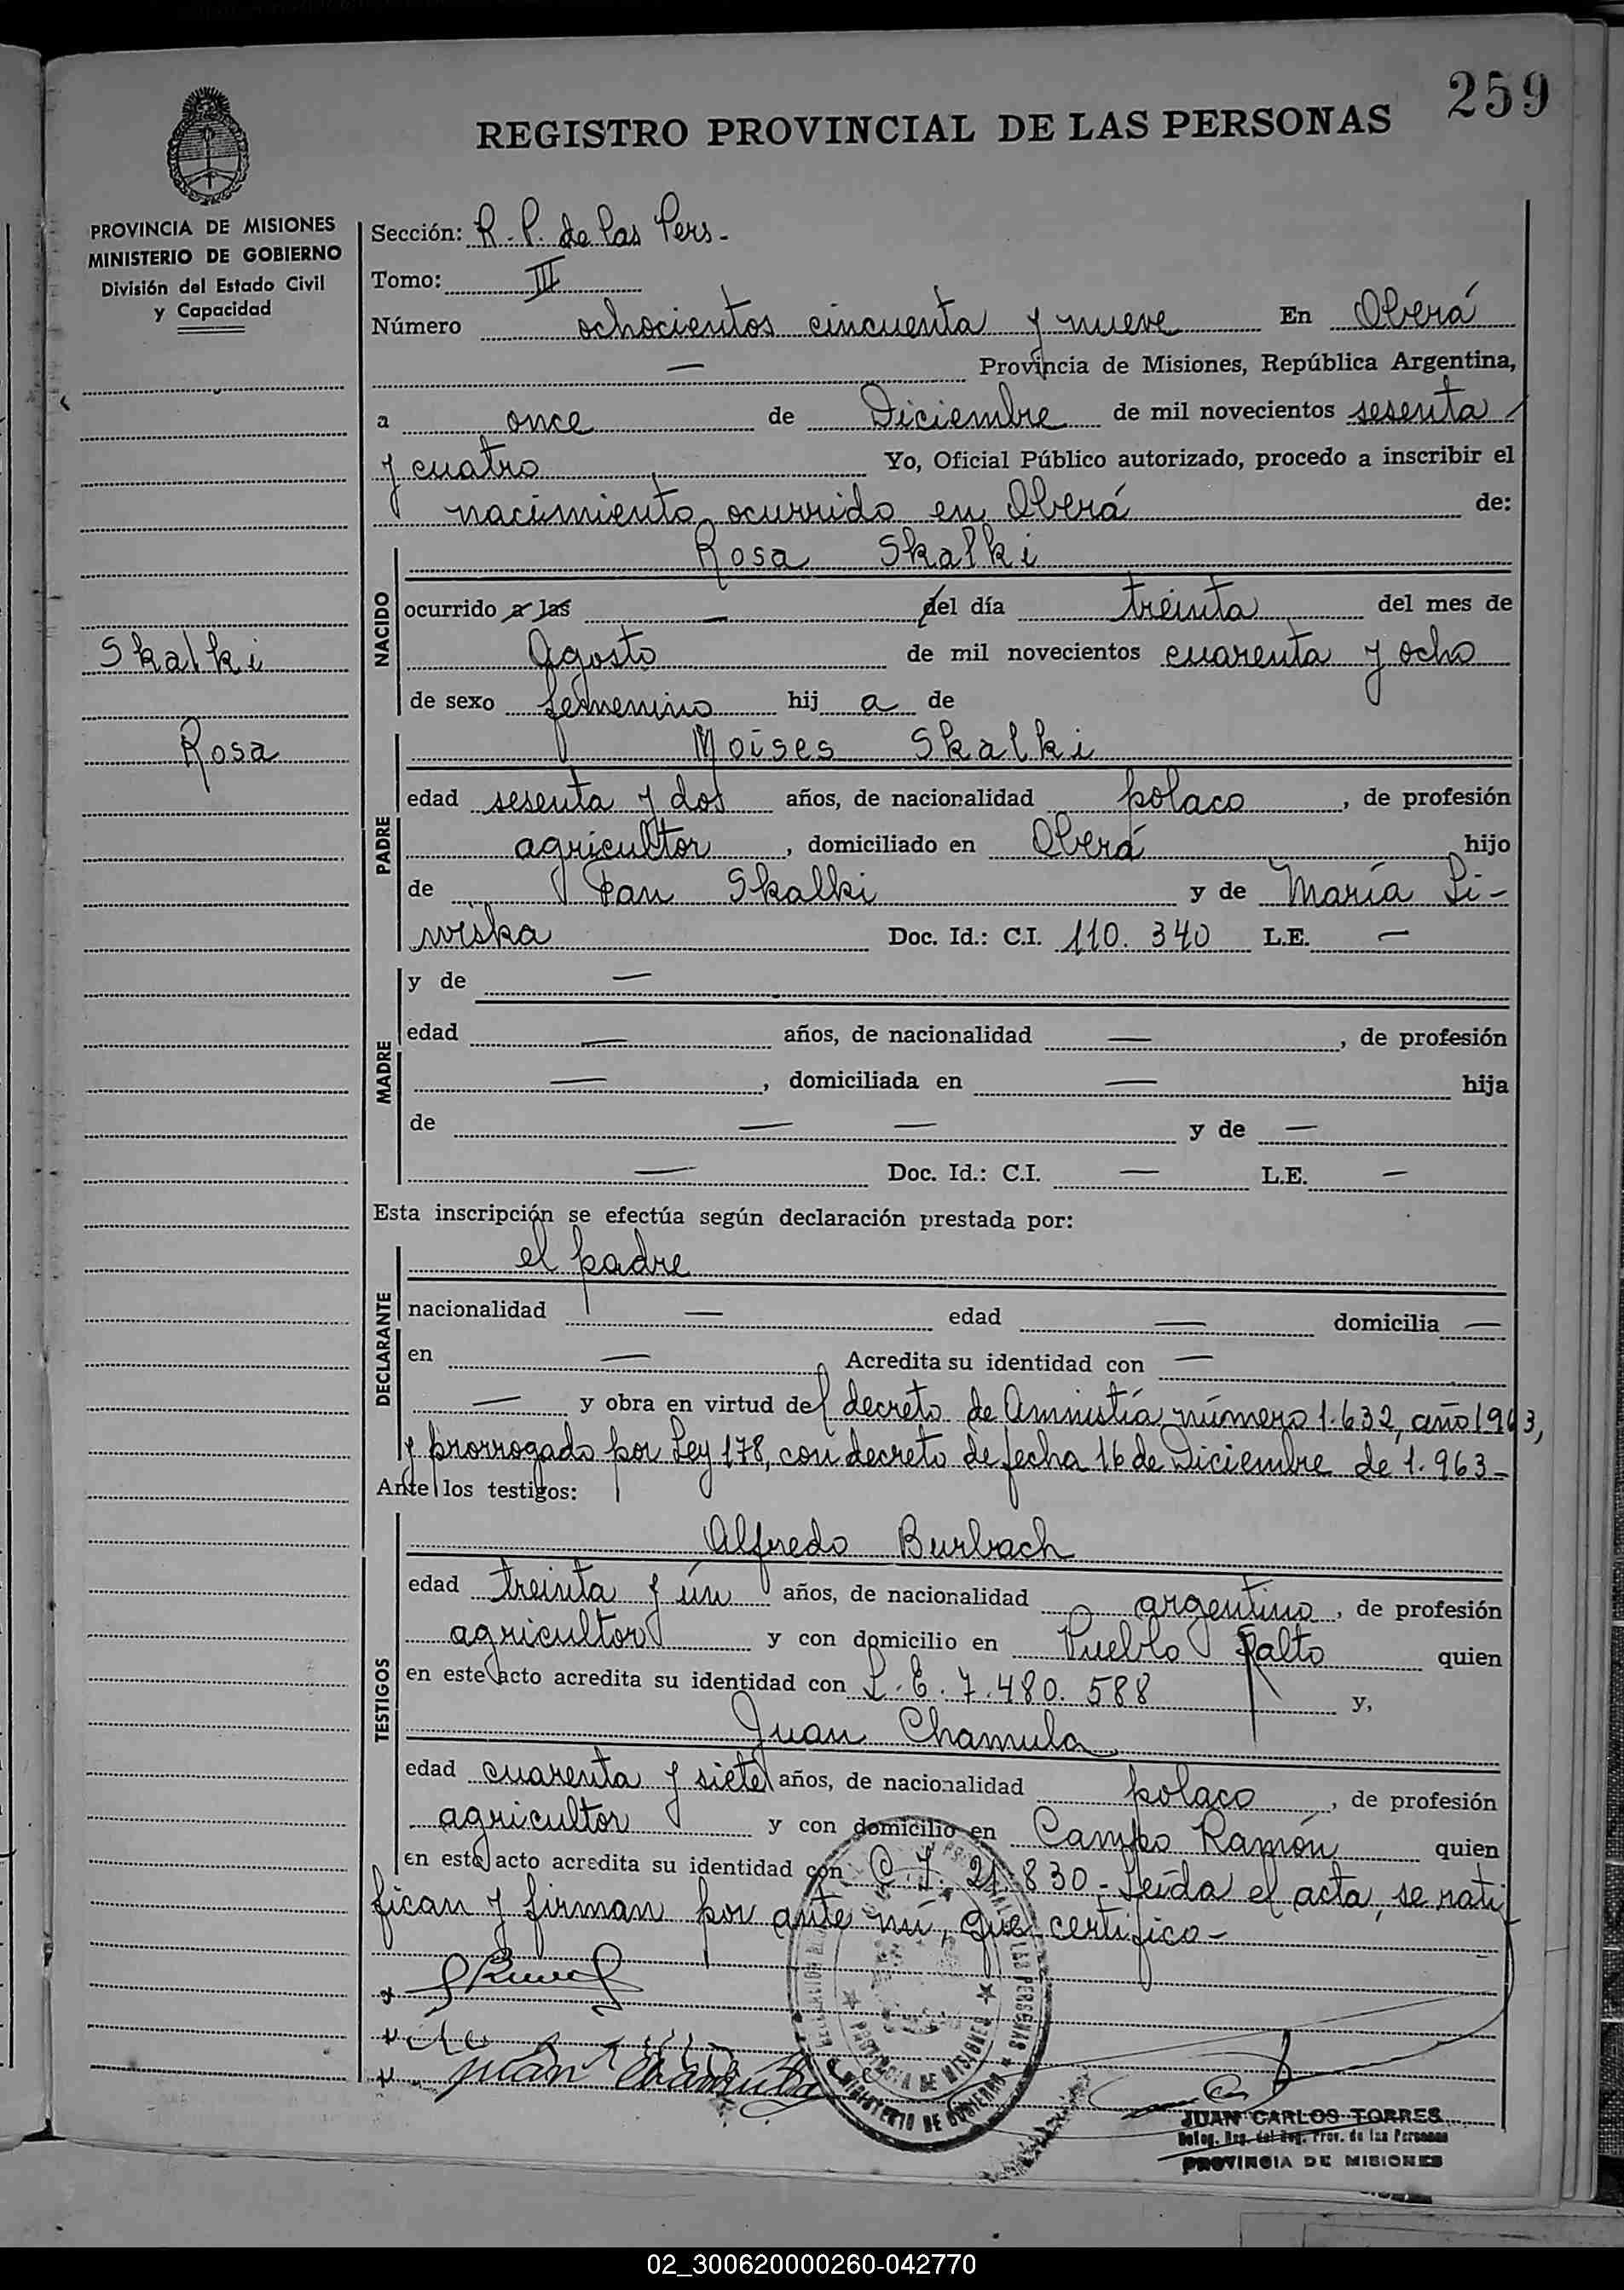 259
REGISTRO PROVINCIAL DE LAS PERSONAS
PROVINCIA DE MISIONES
MINISTERIO DE GOBIERNO
División del Estado Civil
y Capacidad
Skalki
Rosa
Sección: R. P. de las Pers.-
Tomo: III
Número ochocientos cincuenta y nueve En Oberá
— Provincia de Misiones, República Argentina,
a once de Diciembre de mil novecientos sesenta
y cuatro Yo, Oficial Público autorizado, procedo a inscribir el
nacimiento ocurrido en Oberá de:
NACIDO
Rosa Skalki
ocurrido a las — del día treinta del mes de
Agosto de mil novecientos cuarenta y ocho
de sexo femenino hij a de
PADRE
Moises Skalki
edad sesenta y dos años, de nacionalidad polaco, de profesión
agricultor, domiciliado en Oberá hijo
de Pan Skalki y de María Li-
wiska Doc. Id.: C.I. 110.340 L.E. —
MADRE
y de —
edad — años, de nacionalidad —, de profesión
—, domiciliada en — hija
de — — y de —
— Doc. Id.: C.I. — L.E. —
Esta inscripción se efectúa según declaración prestada por:
DECLARANTE
el padre
nacionalidad — edad — domicilia —
en — Acredita su identidad con —
— y obra en virtud del decreto de Amnistía número 1.632, año 1963,
y prorrogado por Ley 178, con decreto de fecha 16 de Diciembre de 1.963-
Ante los testigos:
TESTIGOS
Alfredo Burbach
edad treinta y ún años, de nacionalidad argentino, de profesión
agricultor y con domicilio en Pueblo Salto quien
en este acto acredita su identidad con L.E. 7.480.588 y,
Juan Chamula
edad cuarenta y siete años, de nacionalidad polaco, de profesión
agricultor y con domicilio en Campo Ramón quien
en este acto acredita su identidad con C.I. 21.830.- Leída el acta, se rati
fican y firman por ante mí, que certifico-
Juan Chamula
LAS PERSONAS
PROVINCIA DE MISIONES
MINISTERIO DE GOBIERNO
JUAN CARLOS TORRES
Deleg. Reg. del Reg. Prov. de las Personas
PROVINCIA DE MISIONES
02_300620000260-042770